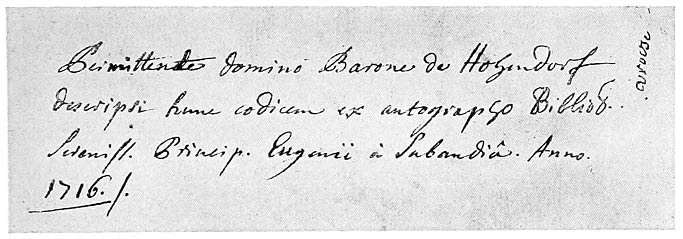 Permittente domino Barone de Hohendorf
descripsi hunc codicem ex autographo Biblioth.
Sereniss. Princip. Eugenii à Sabaudiâ. Anno.
1716.